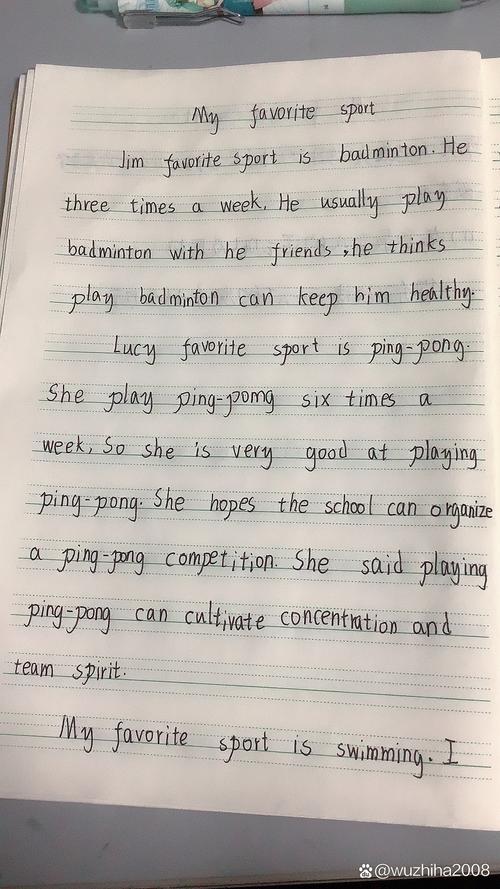 My favorite sport
Jim favorite sport is badminton. He
three times a week. He usually play
badminton with he friends, he thinks
play badminton can keep him healthy.
Lucy favorite sport is ping-pong.
She play ping-pomg six times a
week, So she is very good at playing
ping-pong. She hopes the school can organize
a ping-pong competition. She said playing
ping-pong can cultivate concentration and
team spirit.
My favorite sport is swimming. I
@wuzhiha2008